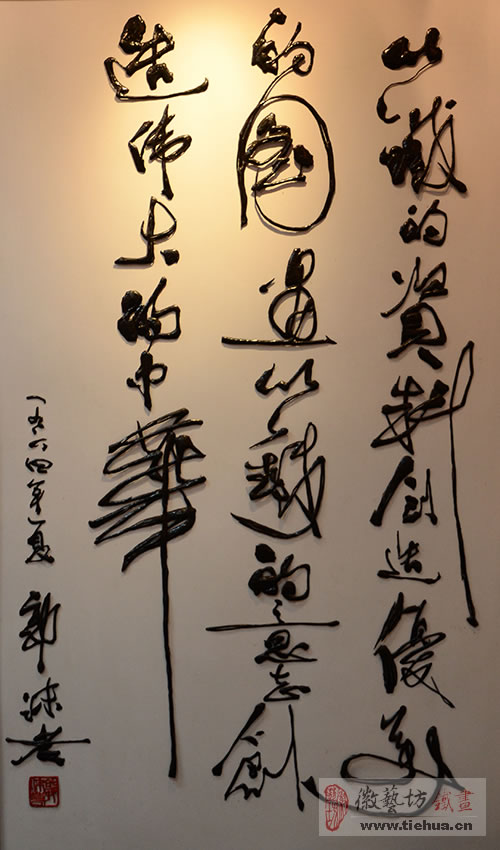 以鐵的資料创造優美
的图畫以鐵的意志創
造伟大的中華
一九六四年夏 郭沫若
徽藝坊鐵畫
www.tiehua.cn